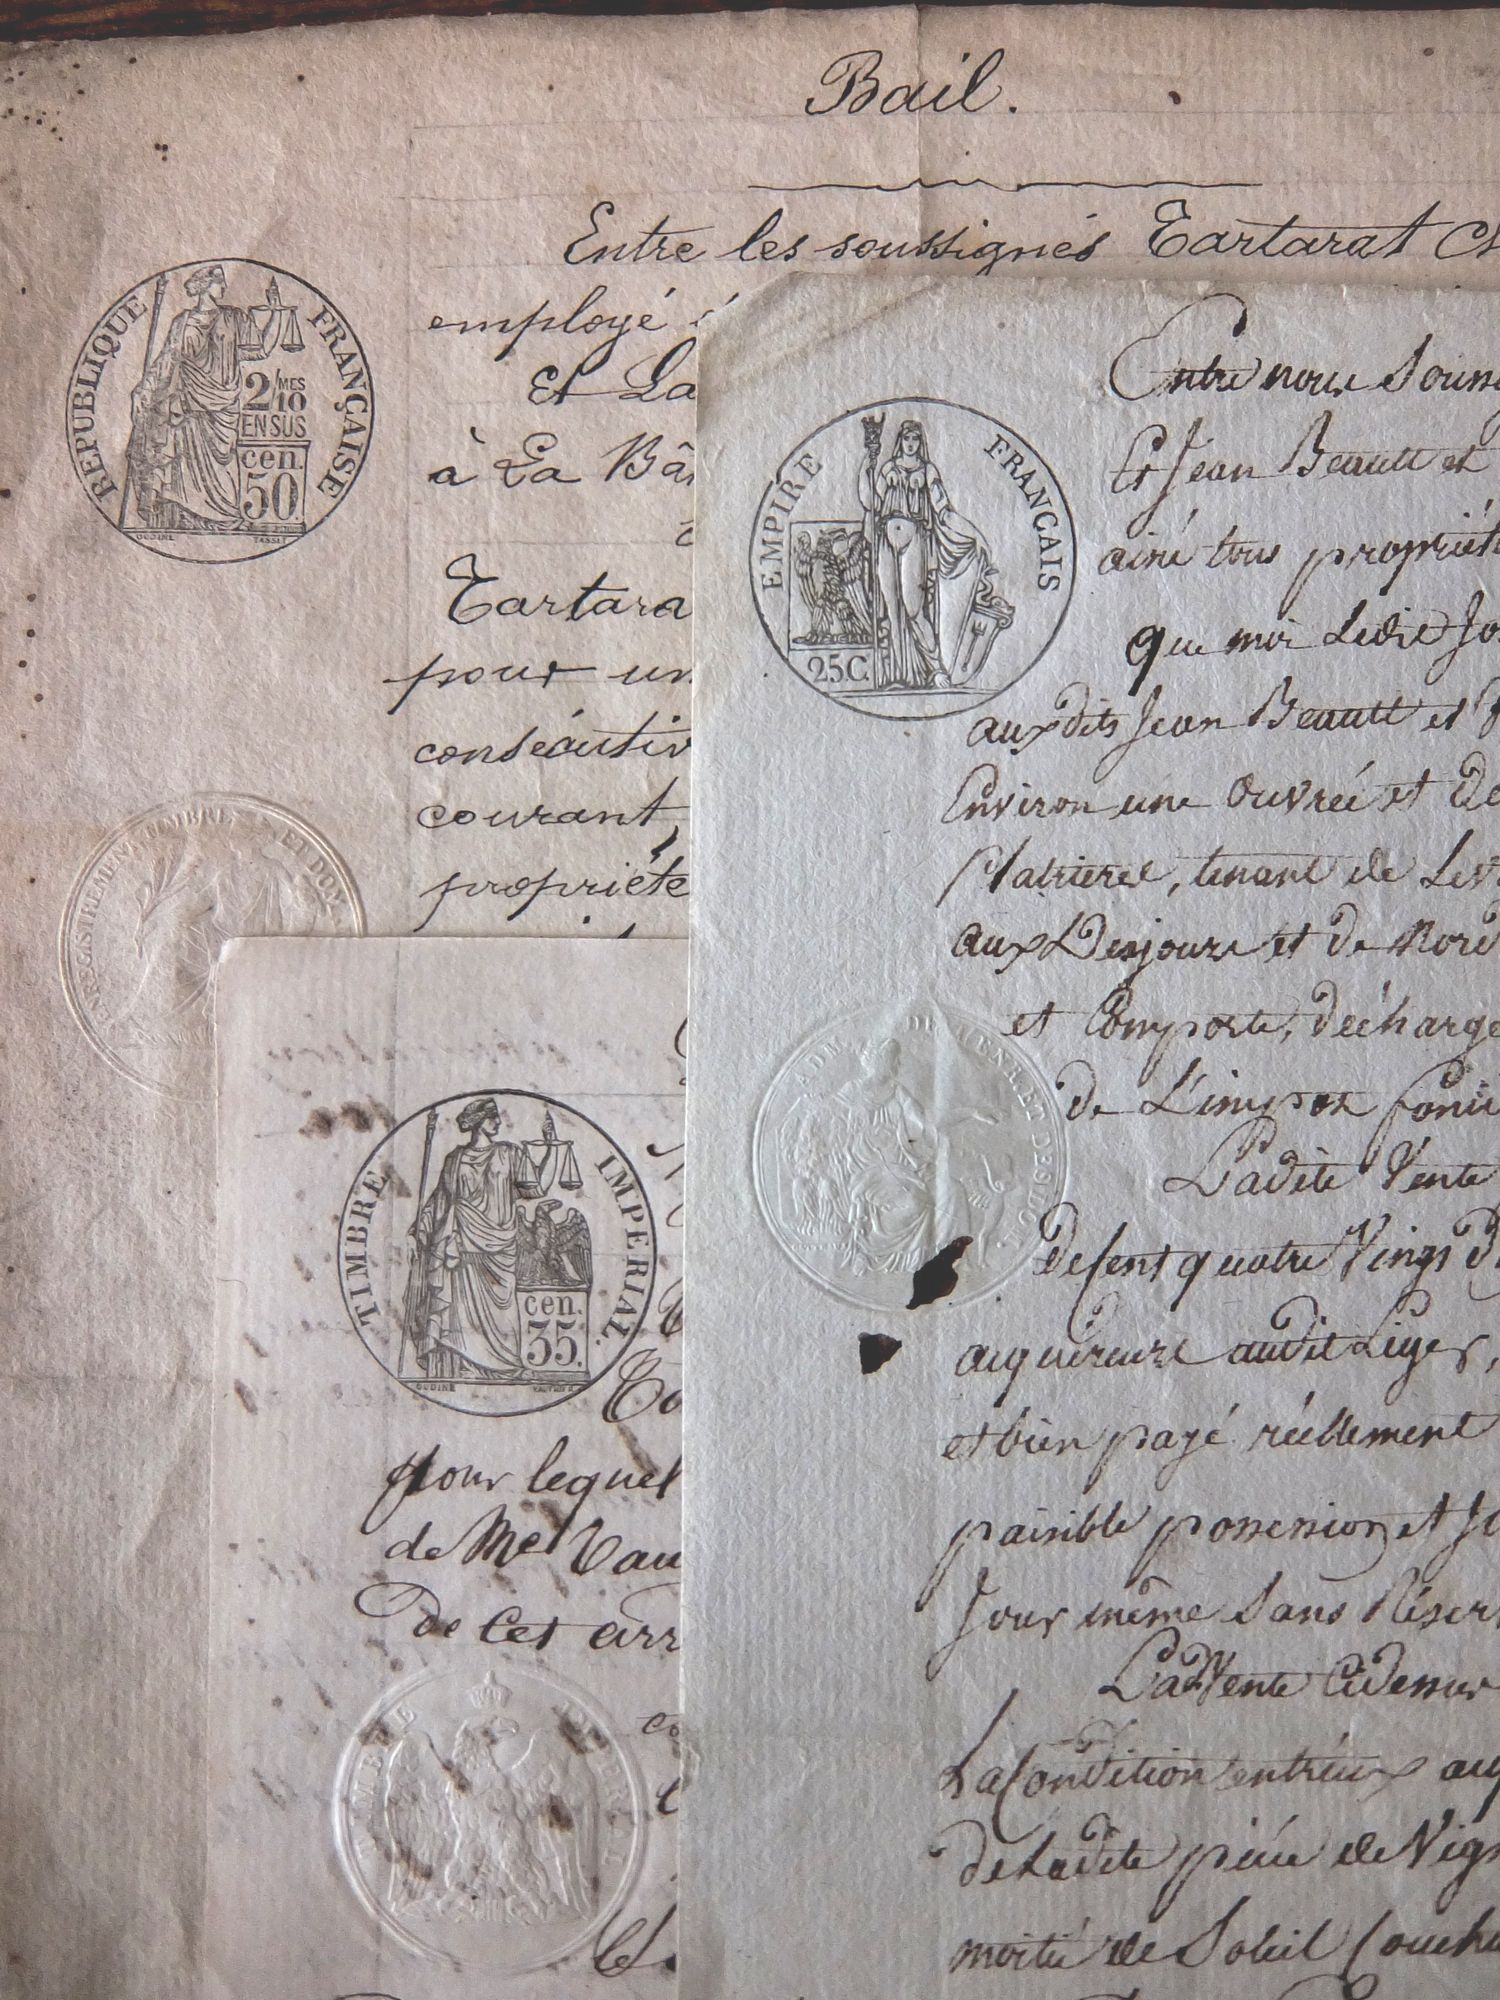 Bail.
Entre les soussignés Tartarat
employé
Et La
à La
Tartara
pour un
conséutiv
courant,
propriété
RÉPUBLIQUE FRANÇAISE
2/MES 10
EN SUS
cen.
50
OUDINE TASSET
ENREGISTREMENT TIMBRE ET DOM
Entre nous Souss
Et Jean Beault et
ainé tous propriét
que moi Ledit Jo
auxdits Jean Beault et
Environ une Ouvrée et De
Platrieres, tenant de Lev
aux Desjours et de Nord
et Comporte, décharge
de L'impot fonci
Ladite Vente
de Cent quatre Vings D
acquereurs audit Liger,
et bien payé réellement
paisible possession et Jo
Jour même Sans Réser
La Vente Cidessus
La Condition entreux
de Ladite piéce de Vign
moitié de Soleil Couch
EMPIRE FRANÇAIS
25 C.
ADM. DE L'ENR. ET DES DOM.
TIMBRE IMPERIAL
cen.
35.
OUDINE
pour lequel
de Me Vau
de Cet arr